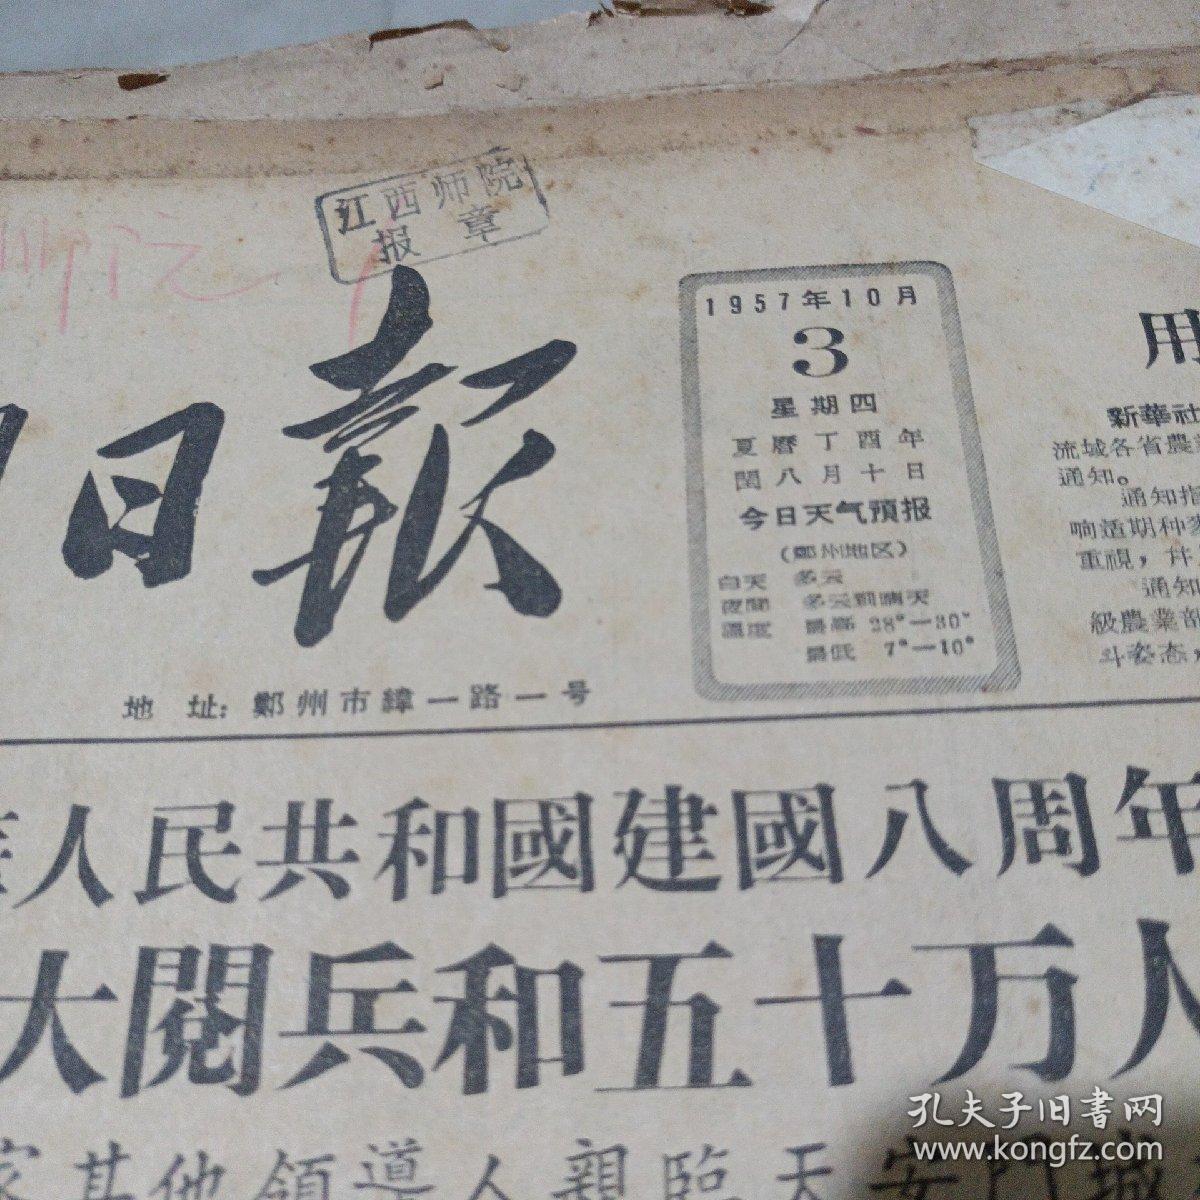 江西师院
报章
日報
地址：鄭州市緯一路一号
1957年10月
3
星期四
夏曆丁酉年
閏八月十日
今日天气預报
（鄭州地区）
白天 多云
夜間 多云到晴天
溫度 最高 28°—30°
最低 7°—10°
用
新華社
流域各省農
通知。
通知指
响适期种麦
重視，幷
通知
級農業部
斗姿态，
人民共和國建國八周年
大閱兵和五十万人
家其他領導人親臨天安門城
孔夫子旧書网
www.kongfz.com